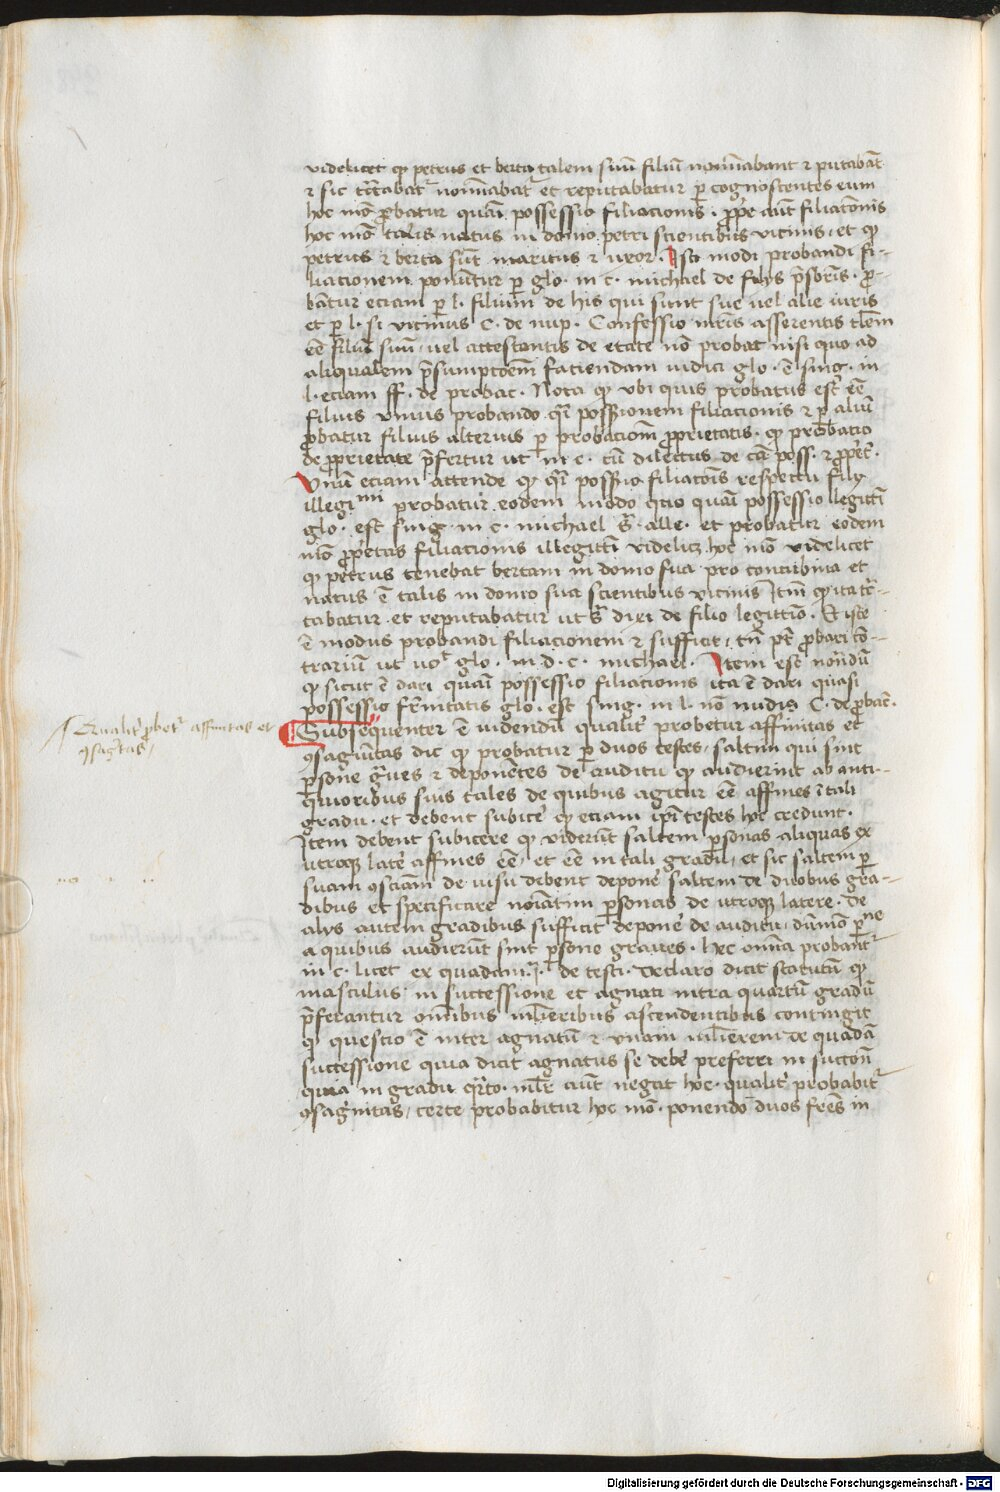 videlicet qꝫ petrus et berta talem suū filiū noīnabant ⁊ putabāt
⁊ sic tc̄tabat᷑ noīnabat᷑ et reputabatur ꝑ cognoscentes eum
hoc mō ꝓbatur quasi possessio filiacionis · aūt filiatōnis
hoc mō talis natus in domo petri scientibus vicinis · et qꝫ
petrus ⁊ berta sūt maritus ⁊ uxor · Isti modi probandi fi-
liacionem ponūtur ꝑ glo · in c · michael de filijs p̄sbris · pro-
bātur eciam ꝑ l · filium de his qui sunt sue uel alie iuris
et ꝑ l · si vicinus C · de nup · Confessio mr̄is asserentis tl̄em
eē filiū suū · uel attestantis de etate nō probat nisi quo ad
aliqualem p̄sumptōem faciendam iudici glo · ē sing · in
l · eciam ff · de probac · Nota qꝫ vbi quis probatus est eē
filius vnius probando qͣsi possessionem filiacionis ⁊ ꝑ aliū
ꝓbatur filius alterius ꝑ probaciōm ꝓprietatis · qꝫ probatio
de ꝓprietate p̄fertur ut in c · cū dilectus de cā poss · ⁊ ꝓpet̄ ·
Vnū eciam attende qꝫ qͣsi possessio filiatōis respectu filij
illegimi probatur eodem modo quo quasi possessio legittī
glo · est sing · in c · michael alle · et probatur eodem
mō ꝓpetas filiationis illegittī videlicꝫ hoc mō videlicet
qꝫ petrus tenebat bertam in domo sua pro concubina et
natus ē talis in domo sua scientibus vicinis Itm̄ qꝫ ita tc̄-
tabatur · et reputabatur ut sͣ dixi de filio legittīo · Et iste
ē modus probandi filiacionem ⁊ sufficit · tn̄ pt̄ ꝓbari cō-
trariū ut no glo · in d · c · michael · Item est nondū
qꝫ sicut ē dari quasi possessio filiacionis ita ē dari quasi
possessio fr̄nitatis glo · est sing · in l · nō nudis C · de ꝓbac̄ ·
Qualit᷑ ꝓbet᷑ affinitas et
ꝯsagītas
Subsequenter ē uidendū qualit᷑ probetur affinitas et
ꝯsaguītas dic qꝫ probatur ꝑ duos testes · saltim qui sint
ꝑsone gͣues ⁊ deponētes de auditu qꝫ audierint ab anti-
quioribus suis tales de quibus agitur eē affines ī tali
gradu · et debent subicē qꝫ eciam ip̄i testes hoc credunt ·
Item debent subicere qꝫ viderūt saltem ꝑsonas aliquas ex
utroqꝫ latē affines eē · et eē in tali gradu · et sic saltem ꝑ
suam ꝯsciam de uisu debent deponē saltem de duobus gra-
dibus et specificare noīatim ꝑsonas de utroqꝫ latere · De
alijs autem gradibus sufficit deponē de auditu dūmō ꝑne
a quibus audierūt sint ꝑsone graues · hec omīa probant᷑
in c · licet ex quadam · de testi · Declaro dicit statutū qꝫ
masculus in successione et agnati intra quartū gradū
p̄ferantur om̄ibus mulieribus ascendentibus contingit
qꝫ questio ē inter agnatū ⁊ vnam mulierem de quadā
successione quia dicit agnatus se debē preferri in succōn
quia in gradu qͣrto · ml̄r aūt negat hoc · qualit᷑ probabit᷑
ꝯsaginitas · certe probabitur hoc mō · ponendo duos frēs in
Digitalisierung gefördert durch die Deutsche Forschungsgemeinschaft - DFG